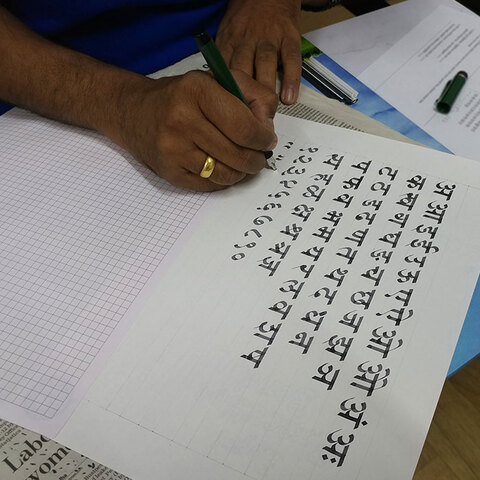 अ आ इ ई उ ऊ ए ऐ ओ औ अं अः
क ख ग घ ङ च छ ज झ ञ
ट ठ ड ढ ण त थ द ध न
प फ ब भ म य र ल व श ष
स ह ळ क्ष श्र त्र ज्ञ
१ २ ३ ४ ५ ६ ७ ८ ९ ०